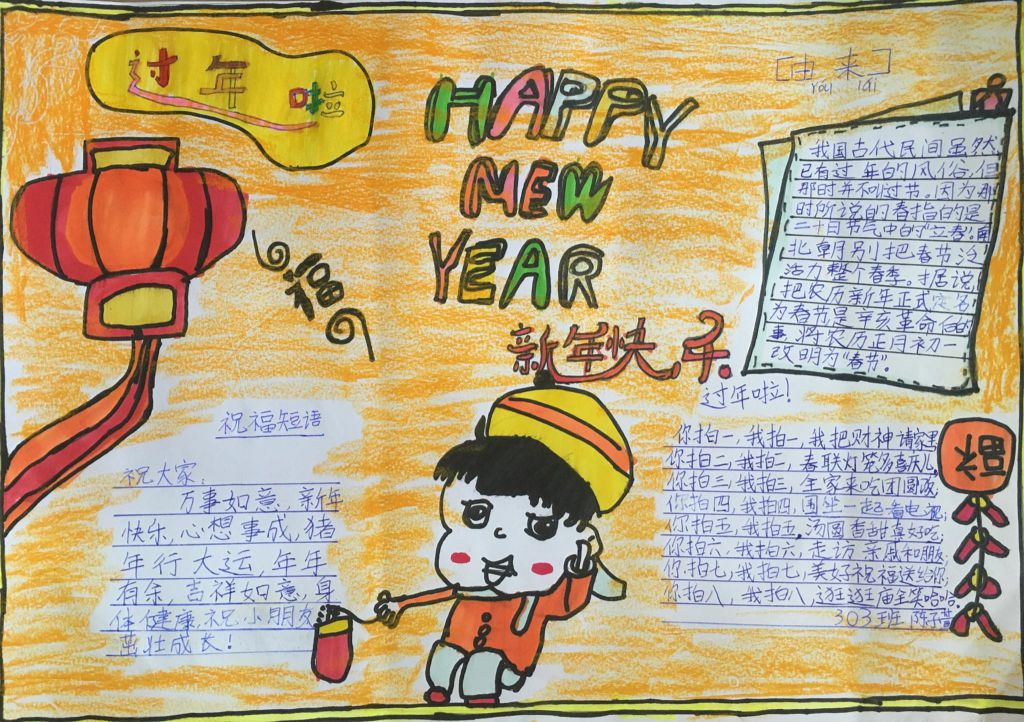 过年啦
HAPPY
MEW
YEAR
新年快乐
福
[由来]
you lai
我国古代民间虽然
已有过年的风俗,但
那时并不叫过节。因为那
时所说的春指的是
二十四节气中的"立春",南
北朝另别把春节泛
活力整个春季。据说,
把农历新年正式定名
为春节是辛亥革命后的
事,将农历正月初一
改明为"春节"。
祝福短语
祝大家:
万事如意,新年
快乐,心想事成,猪
年行大运,年年
有余,吉祥如意,身
体健康,祝小朋友
茁壮成长!
过年啦!
你拍一,我拍一,我把财神请家里,
你拍二,我拍二,春联灯笼多喜庆儿,
你拍三,我拍三,全家来吃团圆饭,
你拍四,我拍四,围坐一起看电视,
你拍五,我拍五,汤圆香甜真好吃,
你拍六,我拍六,走访亲戚和朋友
你拍七,我拍七,美好祝福送给你,
你拍八,我拍八,逛逛庙会笑哈哈。
303班 陈子萱